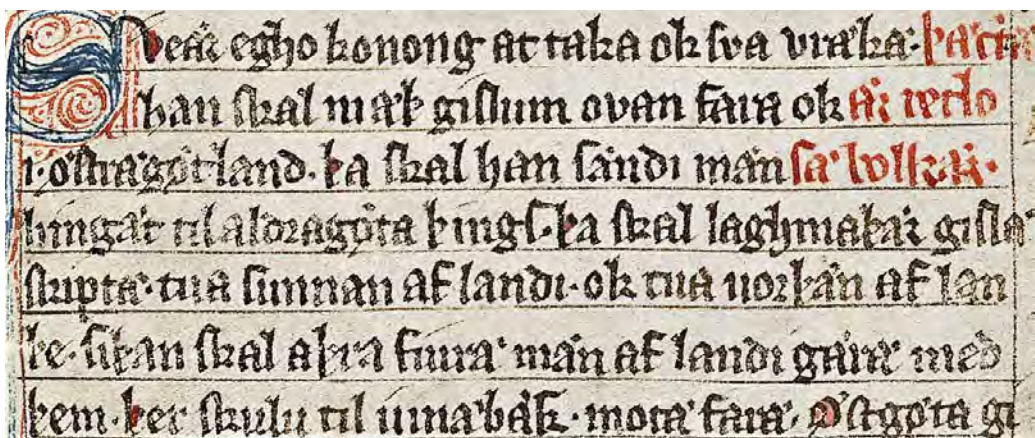 Sveær egho konong at taka ok sva vrækæ. þættæ
han skal mæþ gislum ovan fara ok ær retlo
i. østrægøtland. þa skal han sændi mæn sæ bolkær.
hingæt til aldragøta þings. þa skal laghmaþær gisla
skiptæ. tua sunnan af landi. ok tua norþæn af lan
þe. siþan skal aþra fiura mæn af landi gæræ med
þem. þer skulu til iunæbæk. motæ faræ. Østgøta gi